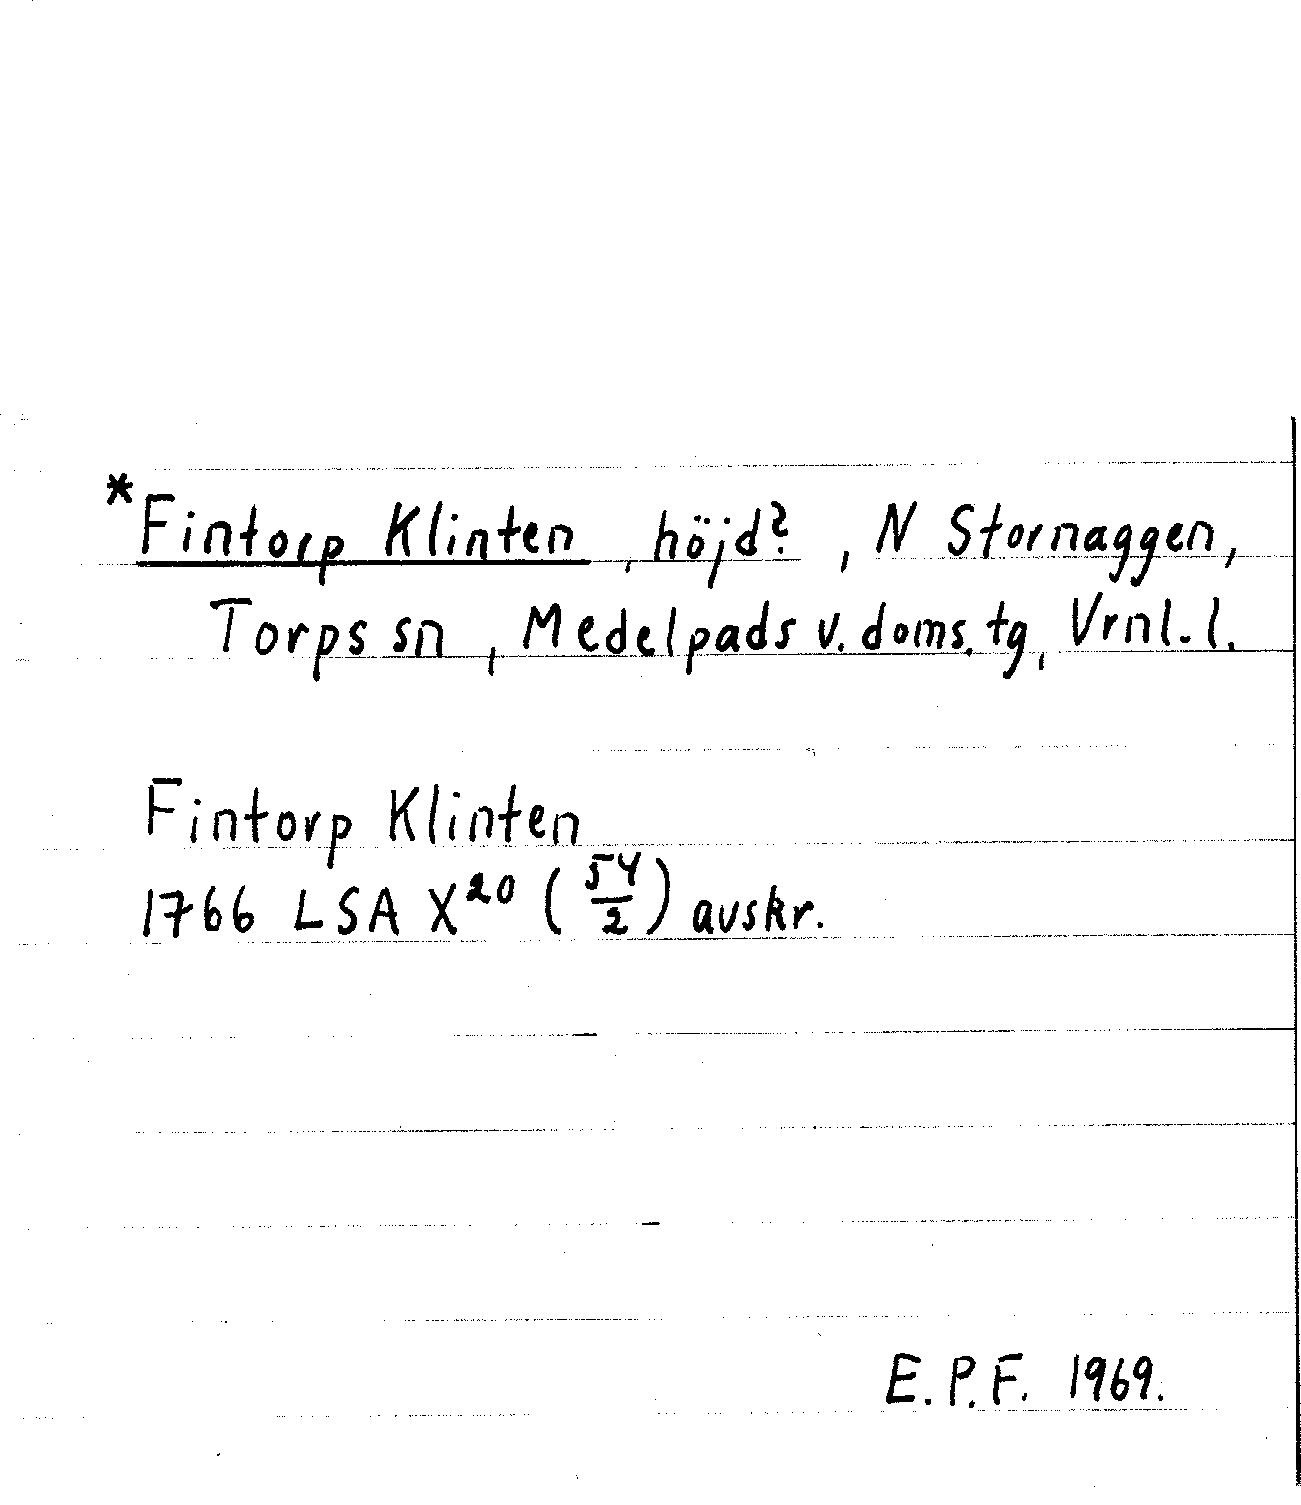 *Fintorp Klinten, höjd?, N Stornaggen,
Torps sn, Medelpads v. doms. tg, Vrnl. l.
Fintorp Klinten
1766 LSA X²⁰ (54/2) avskr.
E.P.F. 1969.